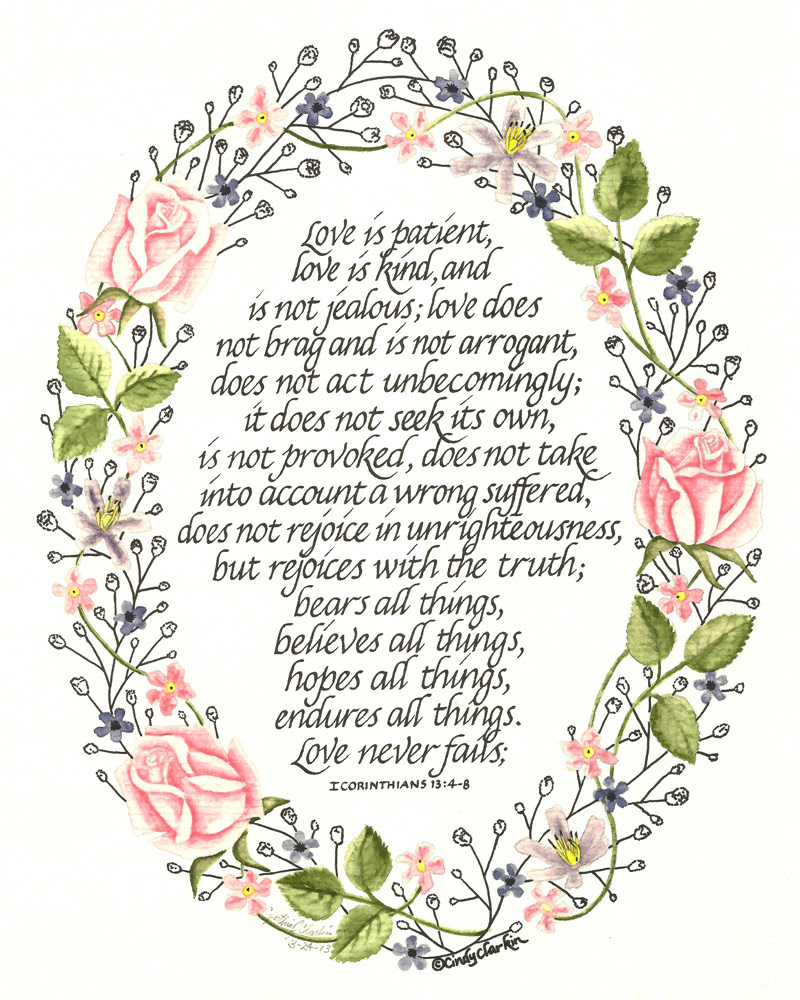 Love is patient,
love is kind, and
is not jealous; love does
not brag and is not arrogant,
does not act unbecomingly;
it does not seek its own,
is not provoked, does not take
into account a wrong suffered,
does not rejoice in unrighteousness,
but rejoices with the truth;
bears all things,
believes all things,
hopes all things,
endures all things.
Love never fails;
I CORINTHIANS 13:4-8
3-24-13
©Cindy Clarkin